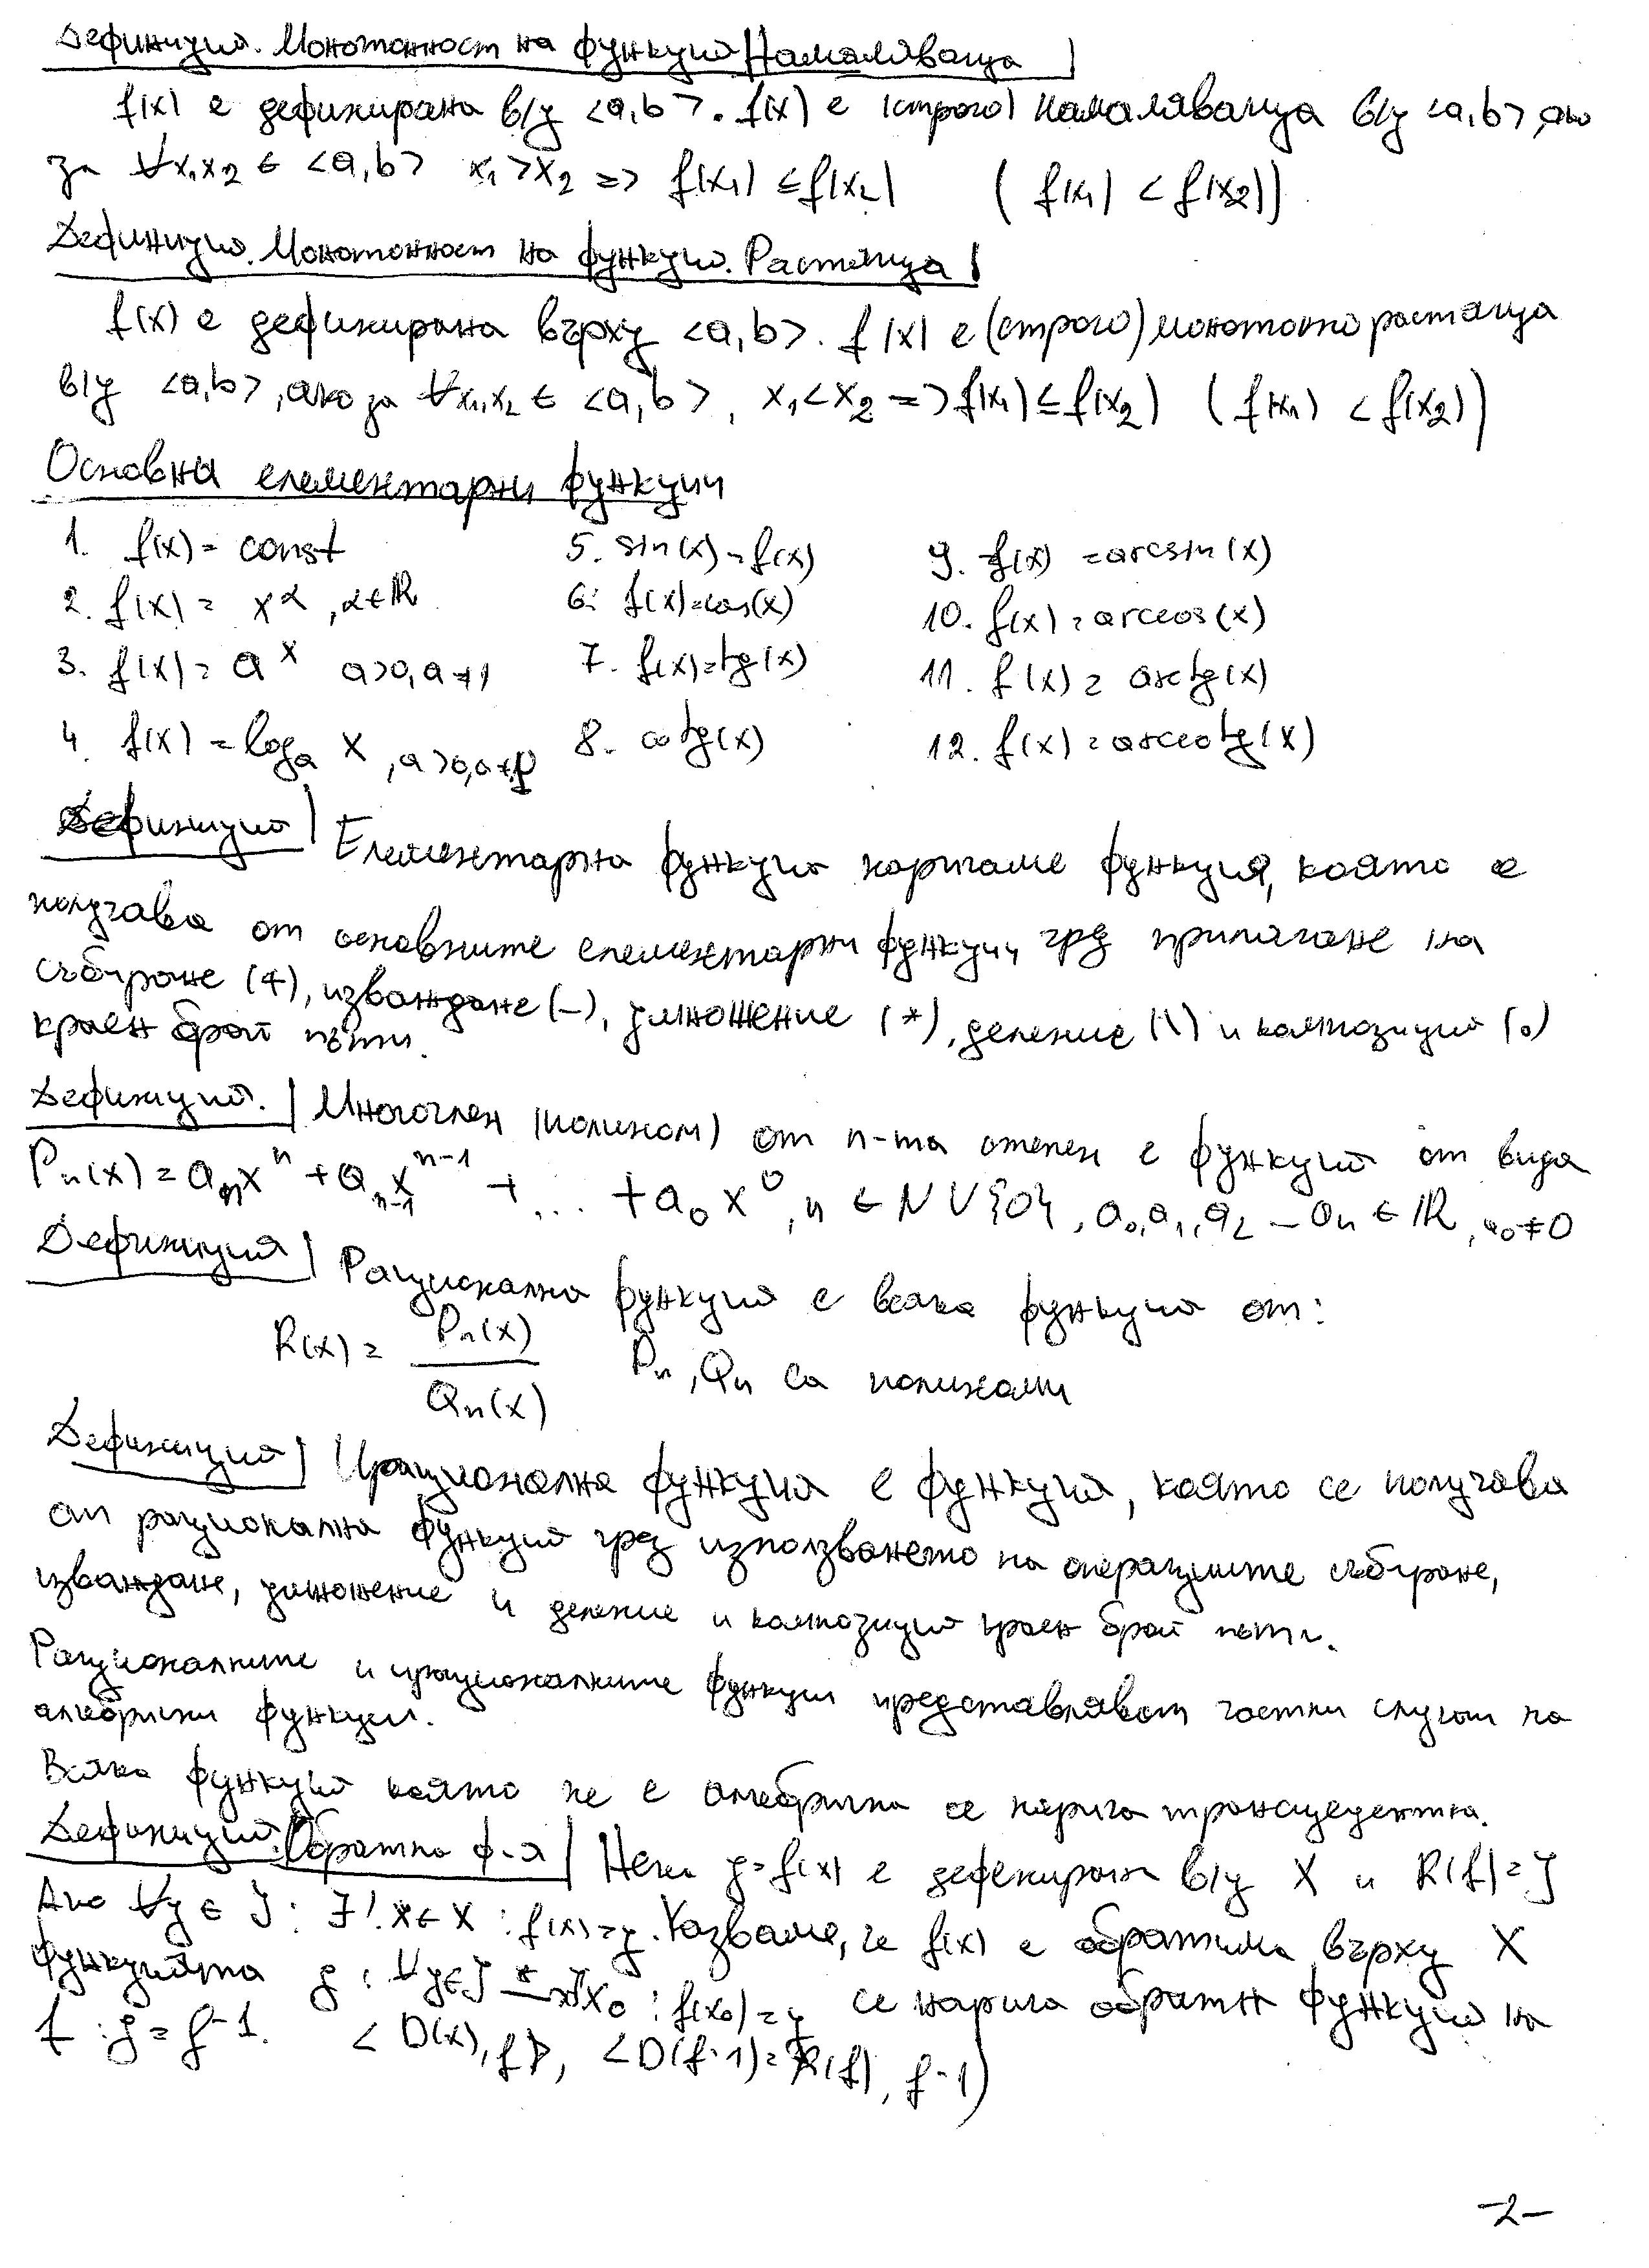 Дефиниция. Монотонност на функция Намаляваща
f(x) е дефинирана в/у <a,b>. f(x) е (строго) намаляваща в/у <a,b>, ако
за ∀x₁x₂ ∈ <a,b> x₁>x₂ => f(x₁) ≤ f(x₂) ( f(x₁) < f(x₂))
Дефиниция. Монотонност на функция. Растяща
f(x) е дефинирана върху <a,b>. f(x) е (строго) монотонно растяща
в/у <a,b>, ако за ∀x₁,x₂ ∈ <a,b>, x₁<x₂ => f(x₁) ≤ f(x₂) ( f(x₁) < f(x₂))
Основни елементарни функции
1. f(x) = const 5. sin(x) = f(x) 9. f(x) = arcsin(x)
2. f(x) = x^α, α∈ℝ 6. f(x)=cos(x) 10. f(x) = arccos(x)
3. f(x) = a^x a>0, a≠1 7. f(x)=tg(x) 11. f(x) = arctg(x)
4. f(x) = logₐ x, a>0, a≠1 8. cotg(x) 12. f(x) = arccotg(x)
Дефиниция Елементарна функция наричаме функция, която се
получава от основните елементарни функции чрез прилагане на
събиране (+), изваждане (-), умножение (*), деление (\) и композиция (o)
краен брой пъти.
Дефиниция. Многочлен (полином) от n-та степен е функция от вида
Pₙ(x) = aₙxⁿ + aₙ₋₁xⁿ⁻¹ + ... + a₀x⁰, n ∈ N ∪ {0}, a₀,a₁,a₂ – aₙ ∈ ℝ, a₀≠0
Дефиниция Рационална функция е всяка функция от:
R(x) = Pₙ(x) / Qₙ(x) Pₙ, Qₙ са полиноми
Дефиниция Ирационална функция е функция, която се получава
от рационална функция чрез използването на операциите събиране,
изваждане, умножение и деление и композиция краен брой пъти.
Рационалните и ирационалните функции представляват частни случаи на
алгебрични функции.
Всяка функция която не е алгебрична се нарича трансцедентна.
Дефиниция. Обратна ф-я Нека y=f(x) е дефенирана в/у X и R(f)=Y
Ако ∀y ∈ Y : ∃! x ∈ X : f(x)=y. Казваме, че f(x) е обратима върху X
функцията g : ∀y∈Y x₀ : f(x₀)=y се нарича обратн функция на
f : g = f-1. < D(x), f>, <D(f-1)=R(f), f-1)
-2-